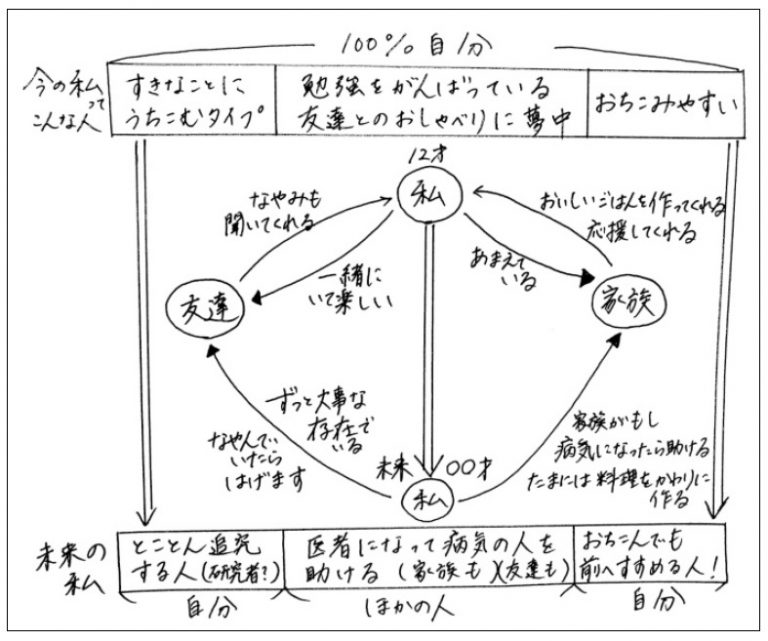 100% 自分
今の私
って
こんな人
すきなことに
うちこむタイプ
勉強をがんばっている
友達とのおしゃべりに夢中
おちこみやすい
12才
私
なやみも
聞いてくれる
一緒に
いて楽しい
おいしいごはんを作ってくれる
応援してくれる
あまえて
いる
友達
家族
ずっと大事な
存在で
いる
なやんで
いたら
はげます
家族がもし
病気になったら助ける
たまには料理をかわりに
作る
未来 〇〇才
私
未来の
私
とことん追究
する人(研究者?)
医者になって病気の人を
助ける (家族も)(友達も)
おちこんでも
前へすすめる人!
自分
ほかの人
自分